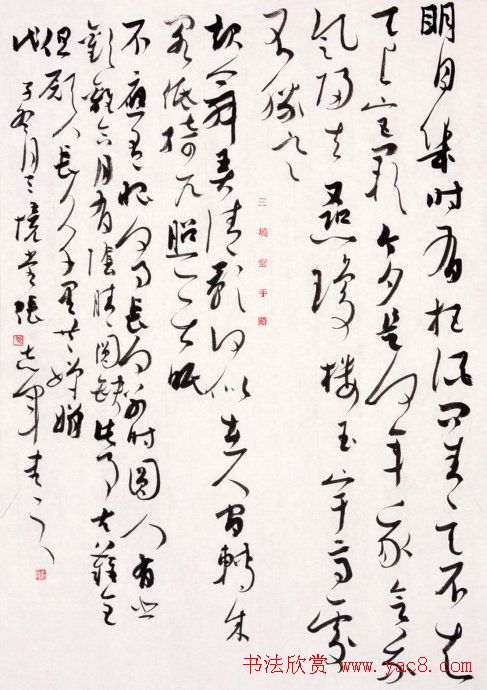 明月幾时有把酒问青天不知
天上宫阙今夕是何年我欲乘
风归去又恐琼楼玉宇高处
不勝寒
起舞弄清影何似在人间轉朱
阁低绮户照无眠
不應有恨何事長向别时圆人有悲
歡離合月有陰晴圆缺此事古難全
但願人長久千里共嬋娟
戊子冬月三境堂張志军书
三境堂手
书法欣赏 www.yac8.com